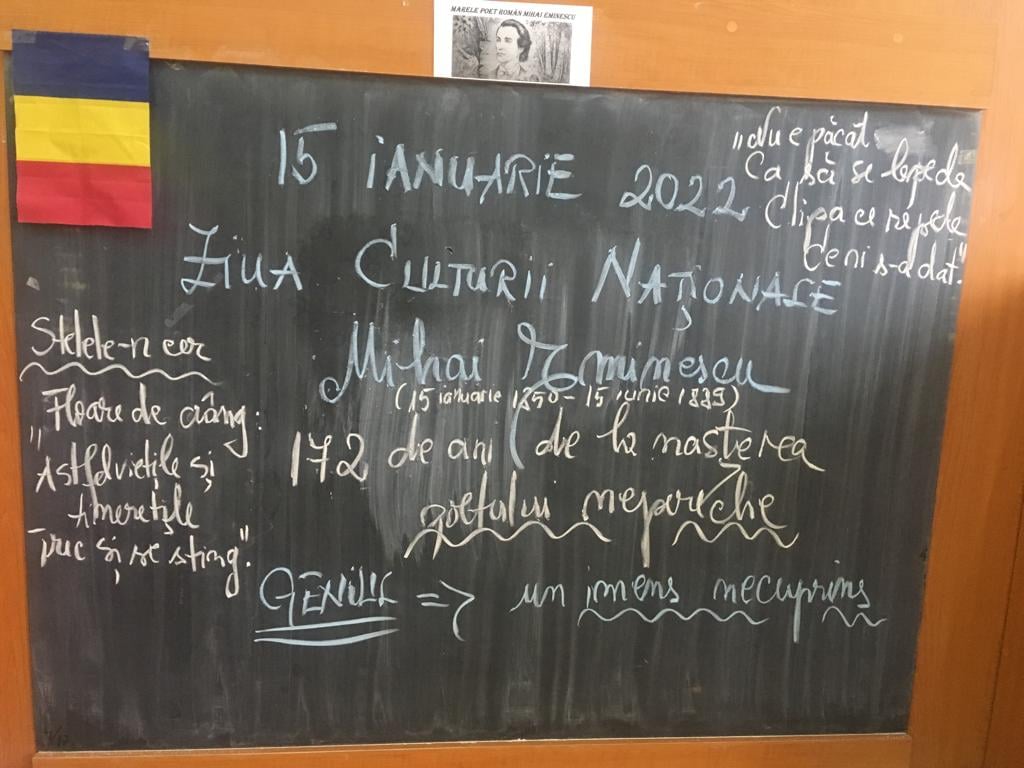 MARELE POET ROMÂN MIHAI EMINESCU
15 IANUARIE 2022
„Nu e păcat
Ca să se lepede
Clipa ce repede
Ce ni s-a dat"
ZIUA CULTURII NAȚIONALE
Mihai Eminescu
(15 ianuarie 1850 - 15 iunie 1889)
172 de ani de la nașterea
poetului nepereche
GENIUL => un imens necuprins
Stelele-n cer
„Floare de crâng:
Astfel viețile și
tinerețile
Trec și se sting".